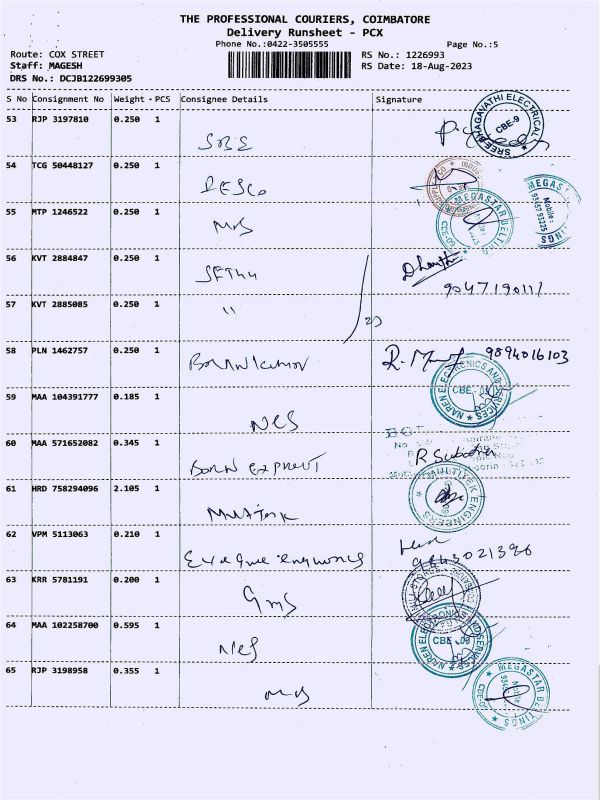 THE PROFESSIONAL COURIERS, COIMBATORE
Delivery Runsheet - PCX
Phone No.:0422-3505555 Page No.:5
Route: COX STREET RS No.: 1226993
Staff: MAGESH RS Date: 18-Aug-2023
DRS No.: DCJB122699305
S No Consignment No Weight - PCS Consignee Details Signature
53 RJP 3197810 0.250 1
SREE BHAGAVATHI ELECTRICAL
CBE-9
54 TCG 50448127 0.250 1 RESCO
55 MTP 1246522 0.250 1
MEGASTAR BELTINGS
Mobile:
93457 93225
MEGASTAR BELTINGS
56 KVT 2884847 0.250 1 SETHU
9047190111
57 KVT 2885085 0.250 1 "
58 PLN 1462757 0.250 1 9894016103
NAREN ELECTRONICS AND SERVICES
CBE - 09
59 MAA 104391777 0.185 1 NES
60 MAA 571652082 0.345 1 R Subatra
61 HRD 758294096 2.105 1
MULTITEK ENGINEERS
62 VPM 5113063 0.210 1
9843021396
63 KRR 5781191 0.200 1 GMS
64 MAA 102258700 0.595 1 NES
NAREN ELECTRONICS AND SERVICES
CBE - 09
65 RJP 3198958 0.355 1
MEGASTAR BELTINGS
Mobile: